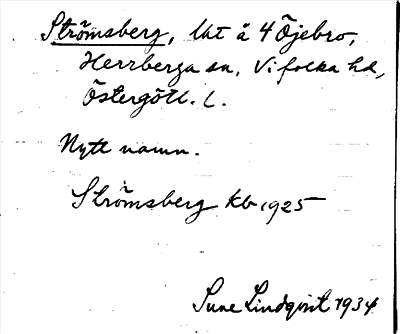 Strömsberg, lht å 4 Öjebro,
Herrberga sn, Vifolka hd,
Östergötl. l.
Nytt namn.
Strömsberg kb 1925
Sune Lindqvist 1934